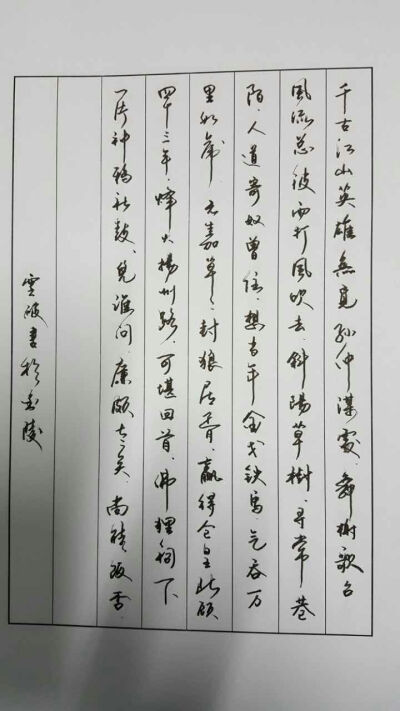 千古江山英雄無覓孫仲謀處.舞榭歌台
風流總被雨打風吹去.斜陽草樹.尋常巷
陌.人道寄奴曾住.想當年金戈鐵馬.氣吞万
里如虎.元嘉草草.封狼居胥.贏得倉皇北顧
四十三年.烽火揚州路.可堪回首.佛狸祠下
一片神鴉社鼓.憑誰問.廉頗老矣.尚能飯否.
書於金陵